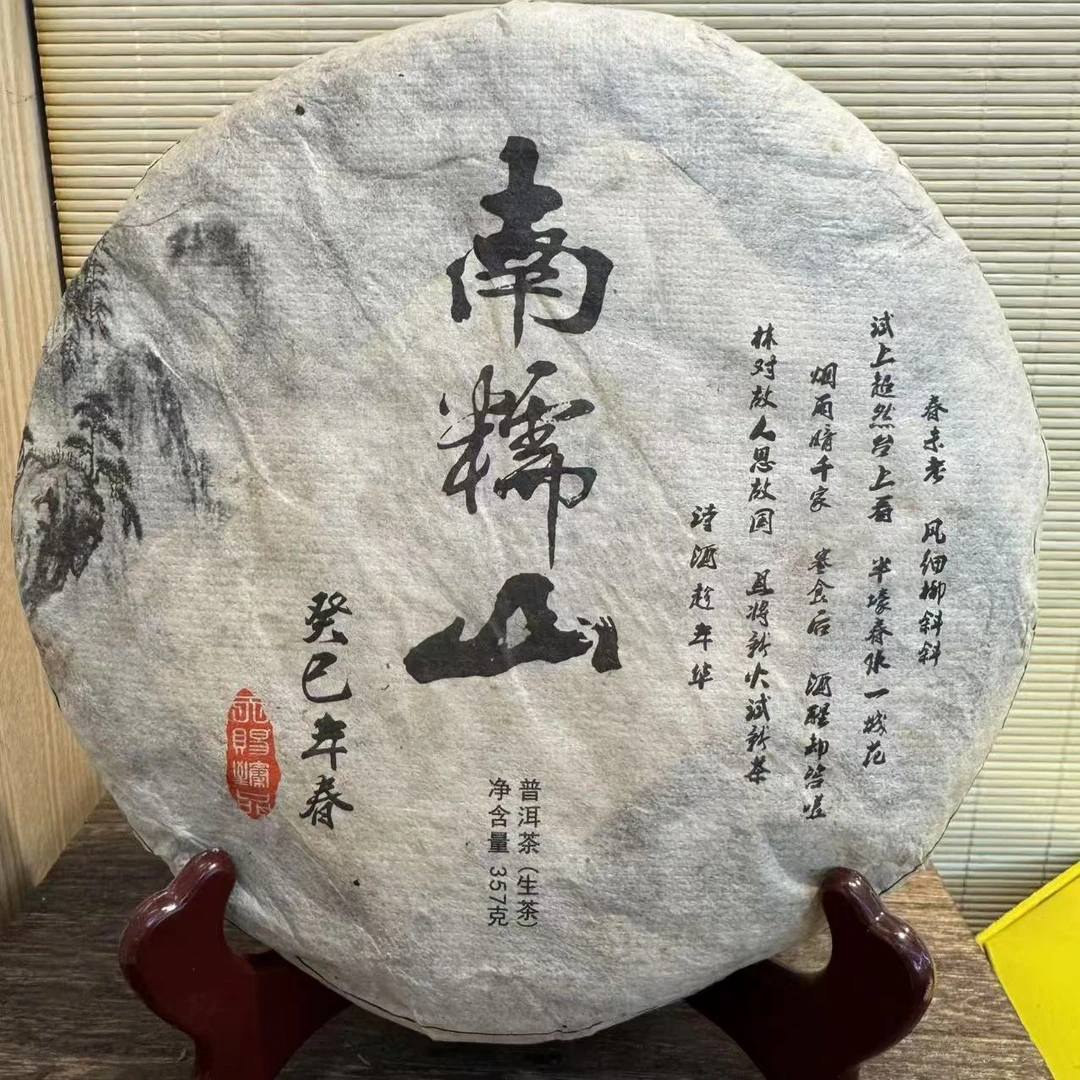 春未老 风细柳斜斜
试上超然台上看 半壕春水一城花
烟雨暗千家 寒食后 酒醒却咨嗟
休对故人思故国 且将新火试新茶
诗酒趁年华
南糯山
普洱茶(生茶)
净含量 357克
癸巳年春